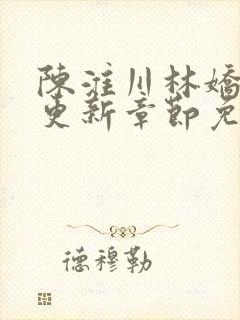 陳淮川林嬌
更新章節免
德穆勒